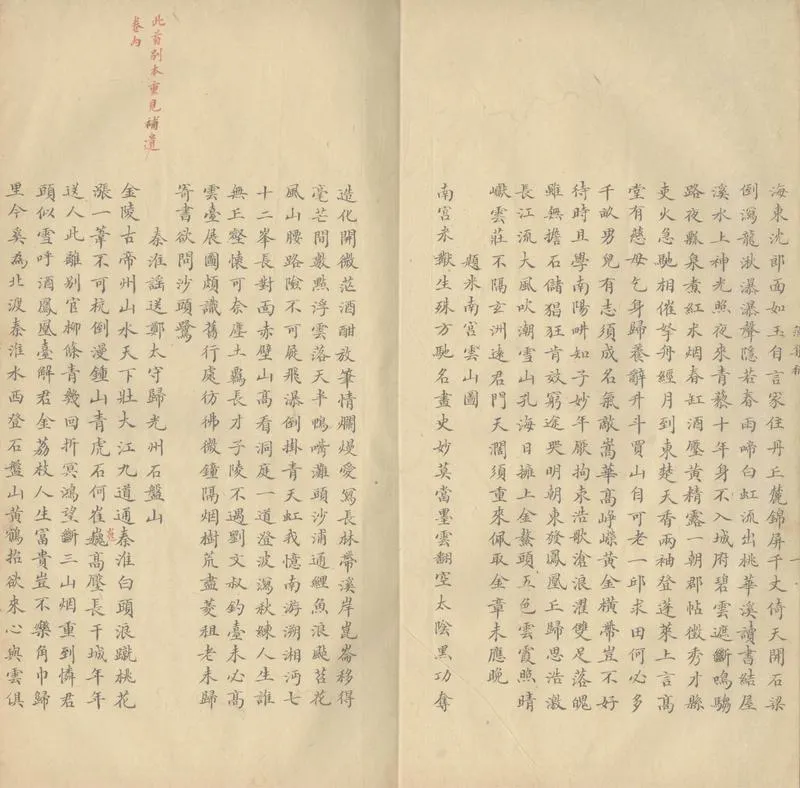 海東沈郎面如玉自言家住丹丘麓錦屏千丈倚天開石梁
倒瀉龍湫瀑瀑聲隱若春雨啼白虹流出桃華溪讀書結屋
溪水上神光照夜來青藜十年身不入城府碧雲遮斷鳴騶
路夜瓢泉煮紅水烟春缸酒壓黃精露一朝郡帖徵秀才縣
吏火急馳相催拏舟經月到東楚天香兩袖登蓬萊上言高
堂有慈母乞身歸養辭升斗買山自可老一邱求田何必多
千畝男兒有志須成名氣敵嵩華高崢嶸黃金橫帶豈不好
待時且學南陽畊如子妙年厭拘束浩歌滄浪濯雙足落魄
雖無擔石儲猖狂肯效窮途哭明朝東發鳳凰正歸思浩激
長江流大風吹潮雪山孔海日擁上金鰲頭五色雲霞照晴
巘雲莊不隔玄洲遠君門天濶須重來佩取金章未應晚
題米南宮雲山圖
南宮米獻生殊方馳名畫史妙莫當墨雲翻空太陰黑功奪
造化開微茫酒酣放筆情爛熳愛寫長林帶溪岸崑崙移得
毫芒間數點浮雲落天半鴨嘴灘頭沙浦通鯉魚浪颭苕花
風山腰路險不可屐飛瀑倒掛青天虹我憶南游溯湘沔七
十二峯長對面赤壁山高看洞庭一道澄波瀉秋練人生誰
無丘壑懷可奈塵土羈長才子陵不遇劉文叔釣臺未必高
雲臺展圖頗識舊行處彷彿微鐘隔烟樹荒盡菱租老未歸
寄書欲問沙頭鷺
秦淮謠送鄭太守歸光州石盤山
金陵古帝州山水天下壯大江九道通秦淮白頭浪蹴桃花
漲一葦不可杭倒漫鍾山青虎石何崔巍高壓長干城年年
送人此離別官柳條青幾回折冥鴻望斷三山烟重到憐君
頭似雪呼酒鳳凰臺解君金荔枝人生富貴豈不樂角巾歸
里今奚為北渡秦淮水西登石盤山黃鶴招欲來心與雲俱
此首別本重見補遺
卷內